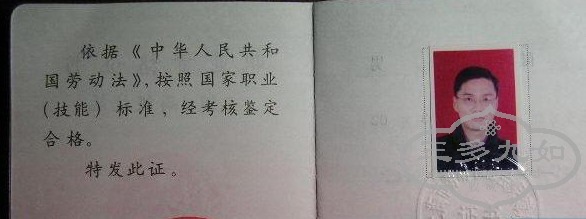 依据《中华人民共和
国劳动法》,按照国家职业
(技能)标准,经考核鉴定
合格。
特发此证。